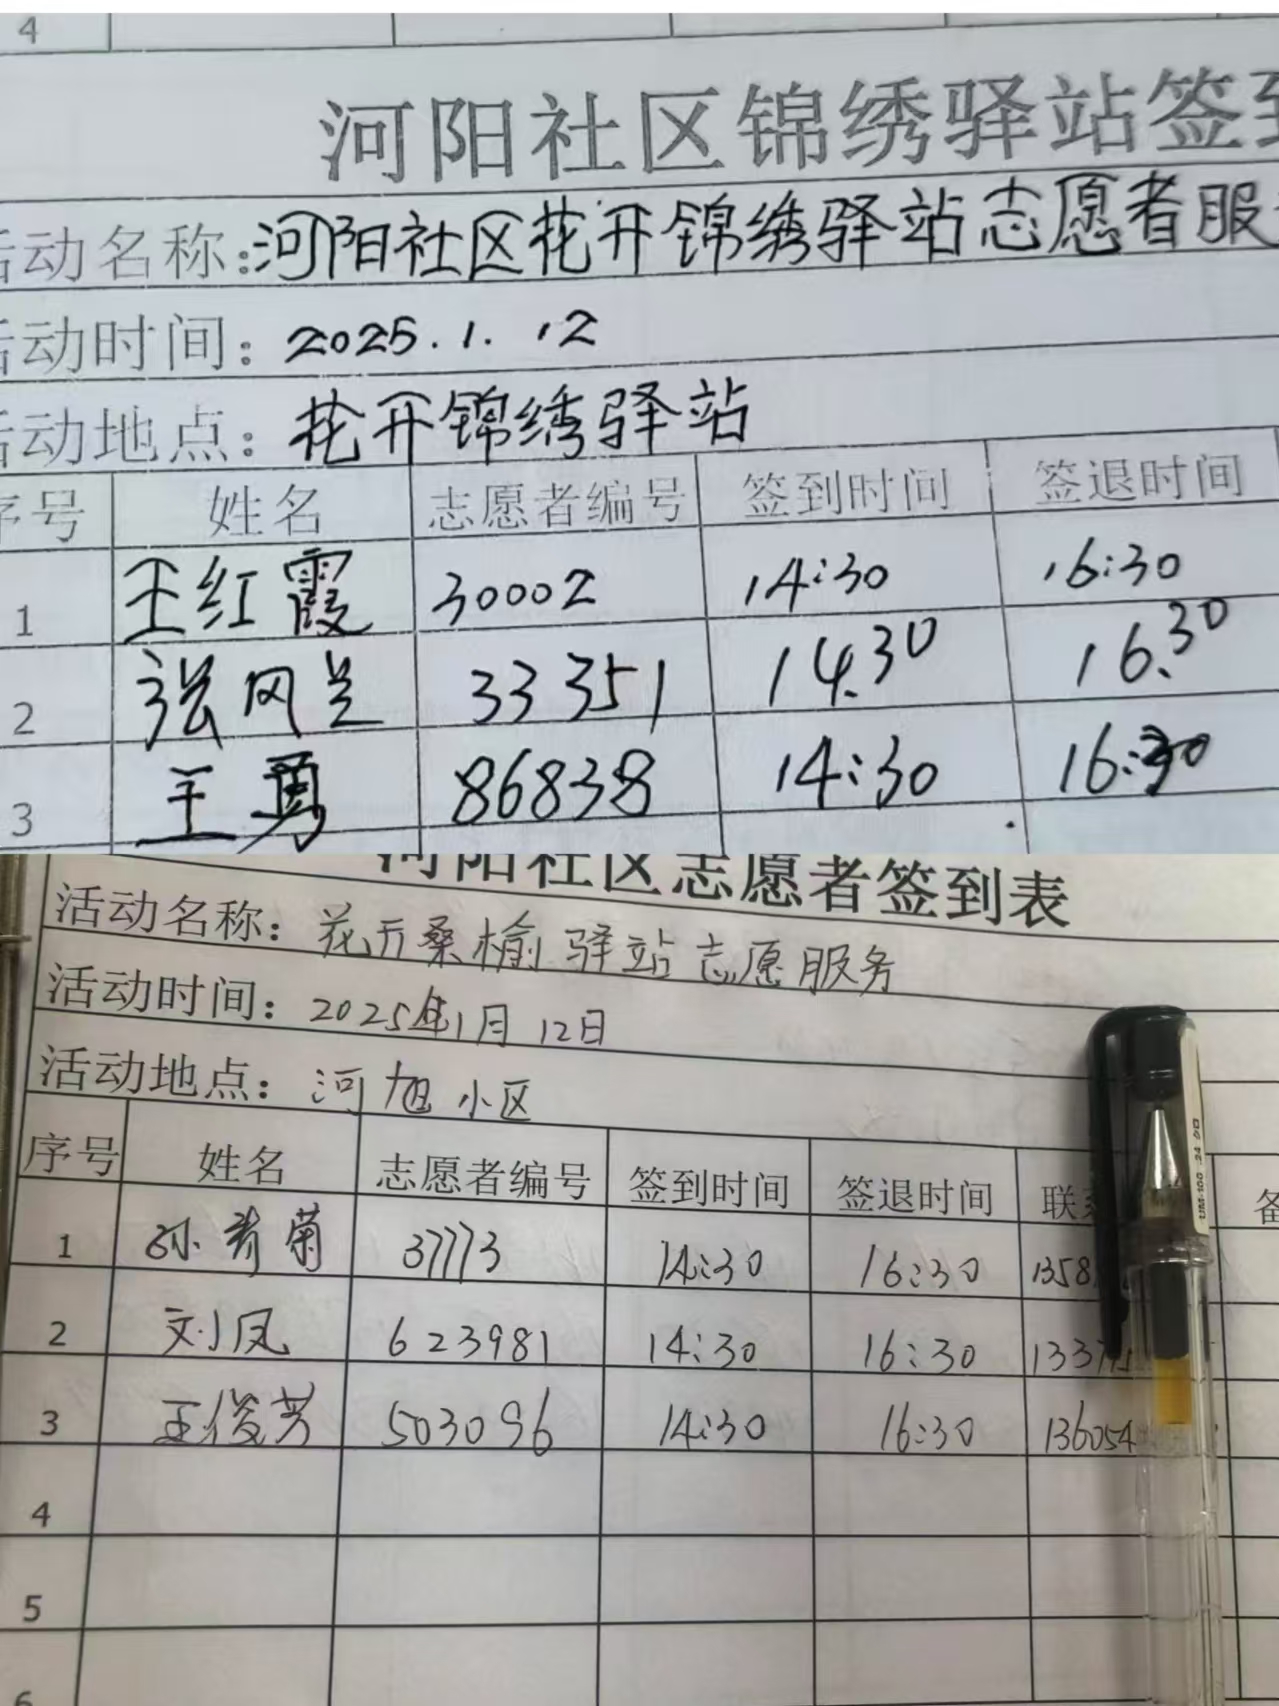 4
河阳社区锦绣驿站签到
活动名称:河阳社区花开锦绣驿站志愿者服
活动时间: 2025.1.12
活动地点: 花开锦绣驿站
序号 姓名 志愿者编号 签到时间 签退时间
1 王红霞 30002 14:30 16:30
2 张风兰 33351 14.30 16.30
3 王勇 86838 14:30 16:30
河阳社区志愿者签到表
活动名称: 花开桑榆驿站志愿服务
活动时间: 2025年1月12日
活动地点: 河旭小区
序号 姓名 志愿者编号 签到时间 签退时间 联系 备
1 孙秀菊 37773 14:30 16:30 1358
2 刘凤 623981 14:30 16:30 1337
3 王俊芳 503096 14:30 16:30 136054
4
5
6